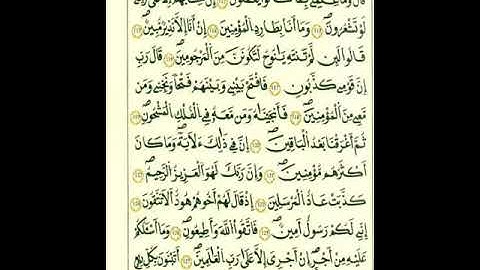 قَالَ وَمَا عِلْمِي بِمَا كَانُوا يَعْمَلُونَ ١١٢ إِنْ حِسَابُهُمْ إِلَّا عَلَىٰ رَبِّي
لَوْ تَشْعُرُونَ ١١٣ وَمَا أَنَا بِطَارِدِ الْمُؤْمِنِينَ ١١٤ إِنْ أَنَا إِلَّا نَذِيرٌ مُبِينٌ ١١٥
قَالُوا لَئِنْ لَمْ تَنْتَهِ يَا نُوحُ لَتَكُونَنَّ مِنَ الْمَرْجُومِينَ ١١٦ قَالَ رَبِّ
إِنَّ قَوْمِي كَذَّبُونِ ١١٧ فَافْتَحْ بَيْنِي وَبَيْنَهُمْ فَتْحًا وَنَجِّنِي وَمَنْ
مَعِيَ مِنَ الْمُؤْمِنِينَ ١١٨ فَأَنْجَيْنَاهُ وَمَنْ مَعَهُ فِي الْفُلْكِ الْمَشْحُونِ ١١٩
ثُمَّ أَغْرَقْنَا بَعْدُ الْبَاقِينَ ١٢٠ إِنَّ فِي ذَٰلِكَ لَآيَةً وَمَا كَانَ
أَكْثَرُهُمْ مُؤْمِنِينَ ١٢١ وَإِنَّ رَبَّكَ لَهُوَ الْعَزِيزُ الرَّحِيمُ ١٢٢
كَذَّبَتْ عَادٌ الْمُرْسَلِينَ ١٢٣ إِذْ قَالَ لَهُمْ أَخُوهُمْ هُودٌ أَلَا تَتَّقُونَ ١٢٤
إِنِّي لَكُمْ رَسُولٌ أَمِينٌ ١٢٥ فَاتَّقُوا اللَّهَ وَأَطِيعُونِ ١٢٦ وَمَا أَسْأَلُكُمْ
عَلَيْهِ مِنْ أَجْرٍ إِنْ أَجْرِيَ إِلَّا عَلَىٰ رَبِّ الْعَالَمِينَ ١٢٧ أَتَبْنُونَ بِكُلِّ رِيعٍ